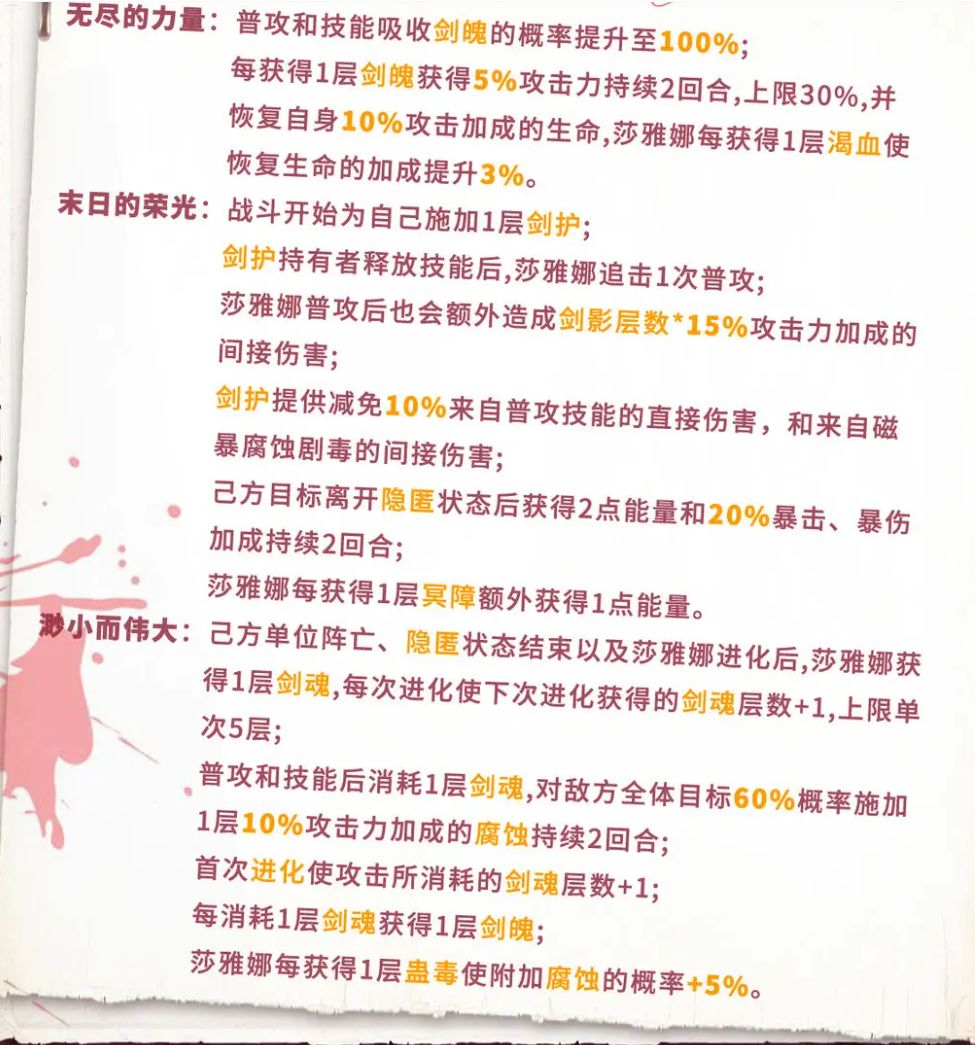 无尽的力量：普攻和技能吸收剑魄的概率提升至100%;
每获得1层剑魄获得5%攻击力持续2回合,上限30%,并
恢复自身10%攻击加成的生命,莎雅娜每获得1层渴血使
恢复生命的加成提升3%。
末日的荣光：战斗开始为自己施加1层剑护;
剑护持有者释放技能后,莎雅娜追击1次普攻;
莎雅娜普攻后也会额外造成剑影层数*15%攻击力加成的
间接伤害;
剑护提供减免10%来自普攻技能的直接伤害，和来自磁
暴腐蚀剧毒的间接伤害;
己方目标离开隐匿状态后获得2点能量和20%暴击、暴伤
加成持续2回合;
莎雅娜每获得1层冥障额外获得1点能量。
渺小而伟大：己方单位阵亡、隐匿状态结束以及莎雅娜进化后,莎雅娜获
得1层剑魂,每次进化使下次进化获得的剑魂层数+1,上限单
次5层;
普攻和技能后消耗1层剑魂,对敌方全体目标60%概率施加
1层10%攻击力加成的腐蚀持续2回合;
首次进化使攻击所消耗的剑魂层数+1;
每消耗1层剑魂获得1层剑魄;
莎雅娜每获得1层蛊毒使附加腐蚀的概率+5%。